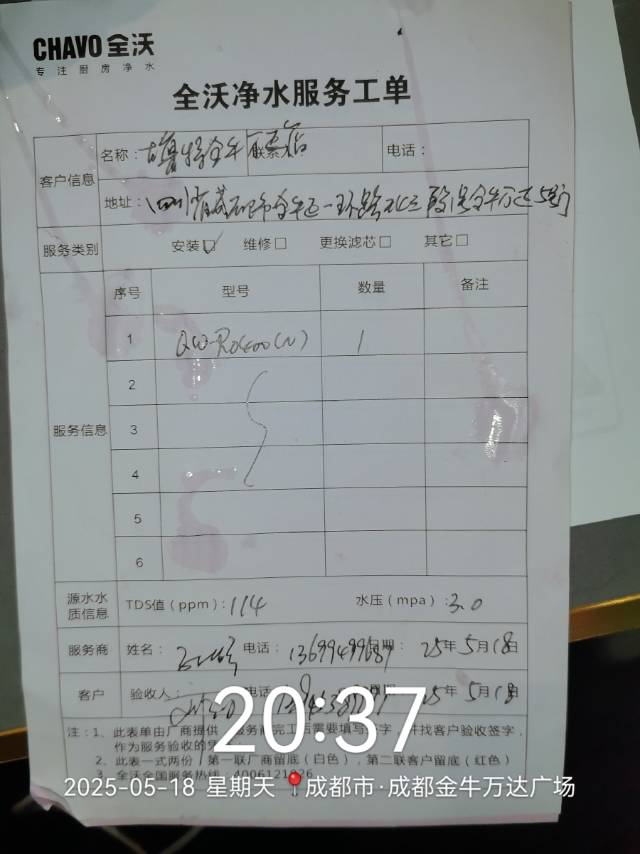 CHAVO 全沃
专注厨房净水
全沃净水服务工单
客户信息
名称：
电话：
地址：四川省成都市金牛区一环路北三段1号金牛万达5号门
服务类别 安装☑ 维修□ 更换滤芯□ 其它□
服务信息
序号 型号 数量 备注
1 QW-RO400(N) 1
2
3
4
5
6
源水水质信息 TDS值（ppm）：114 水压（mpa）：3.0
服务商 姓名： 电话： 日期： 25年5月18日
客户 验收人： 电话 25年5月18日
20:37
注：1、此表单由厂商提供
作为服务验收的
2、此表一式两份，第一联厂商留底（白色），第二联客户留底（红色）
3、全沃全国服务热线
2025-05-18 星期天 成都市·成都金牛万达广场